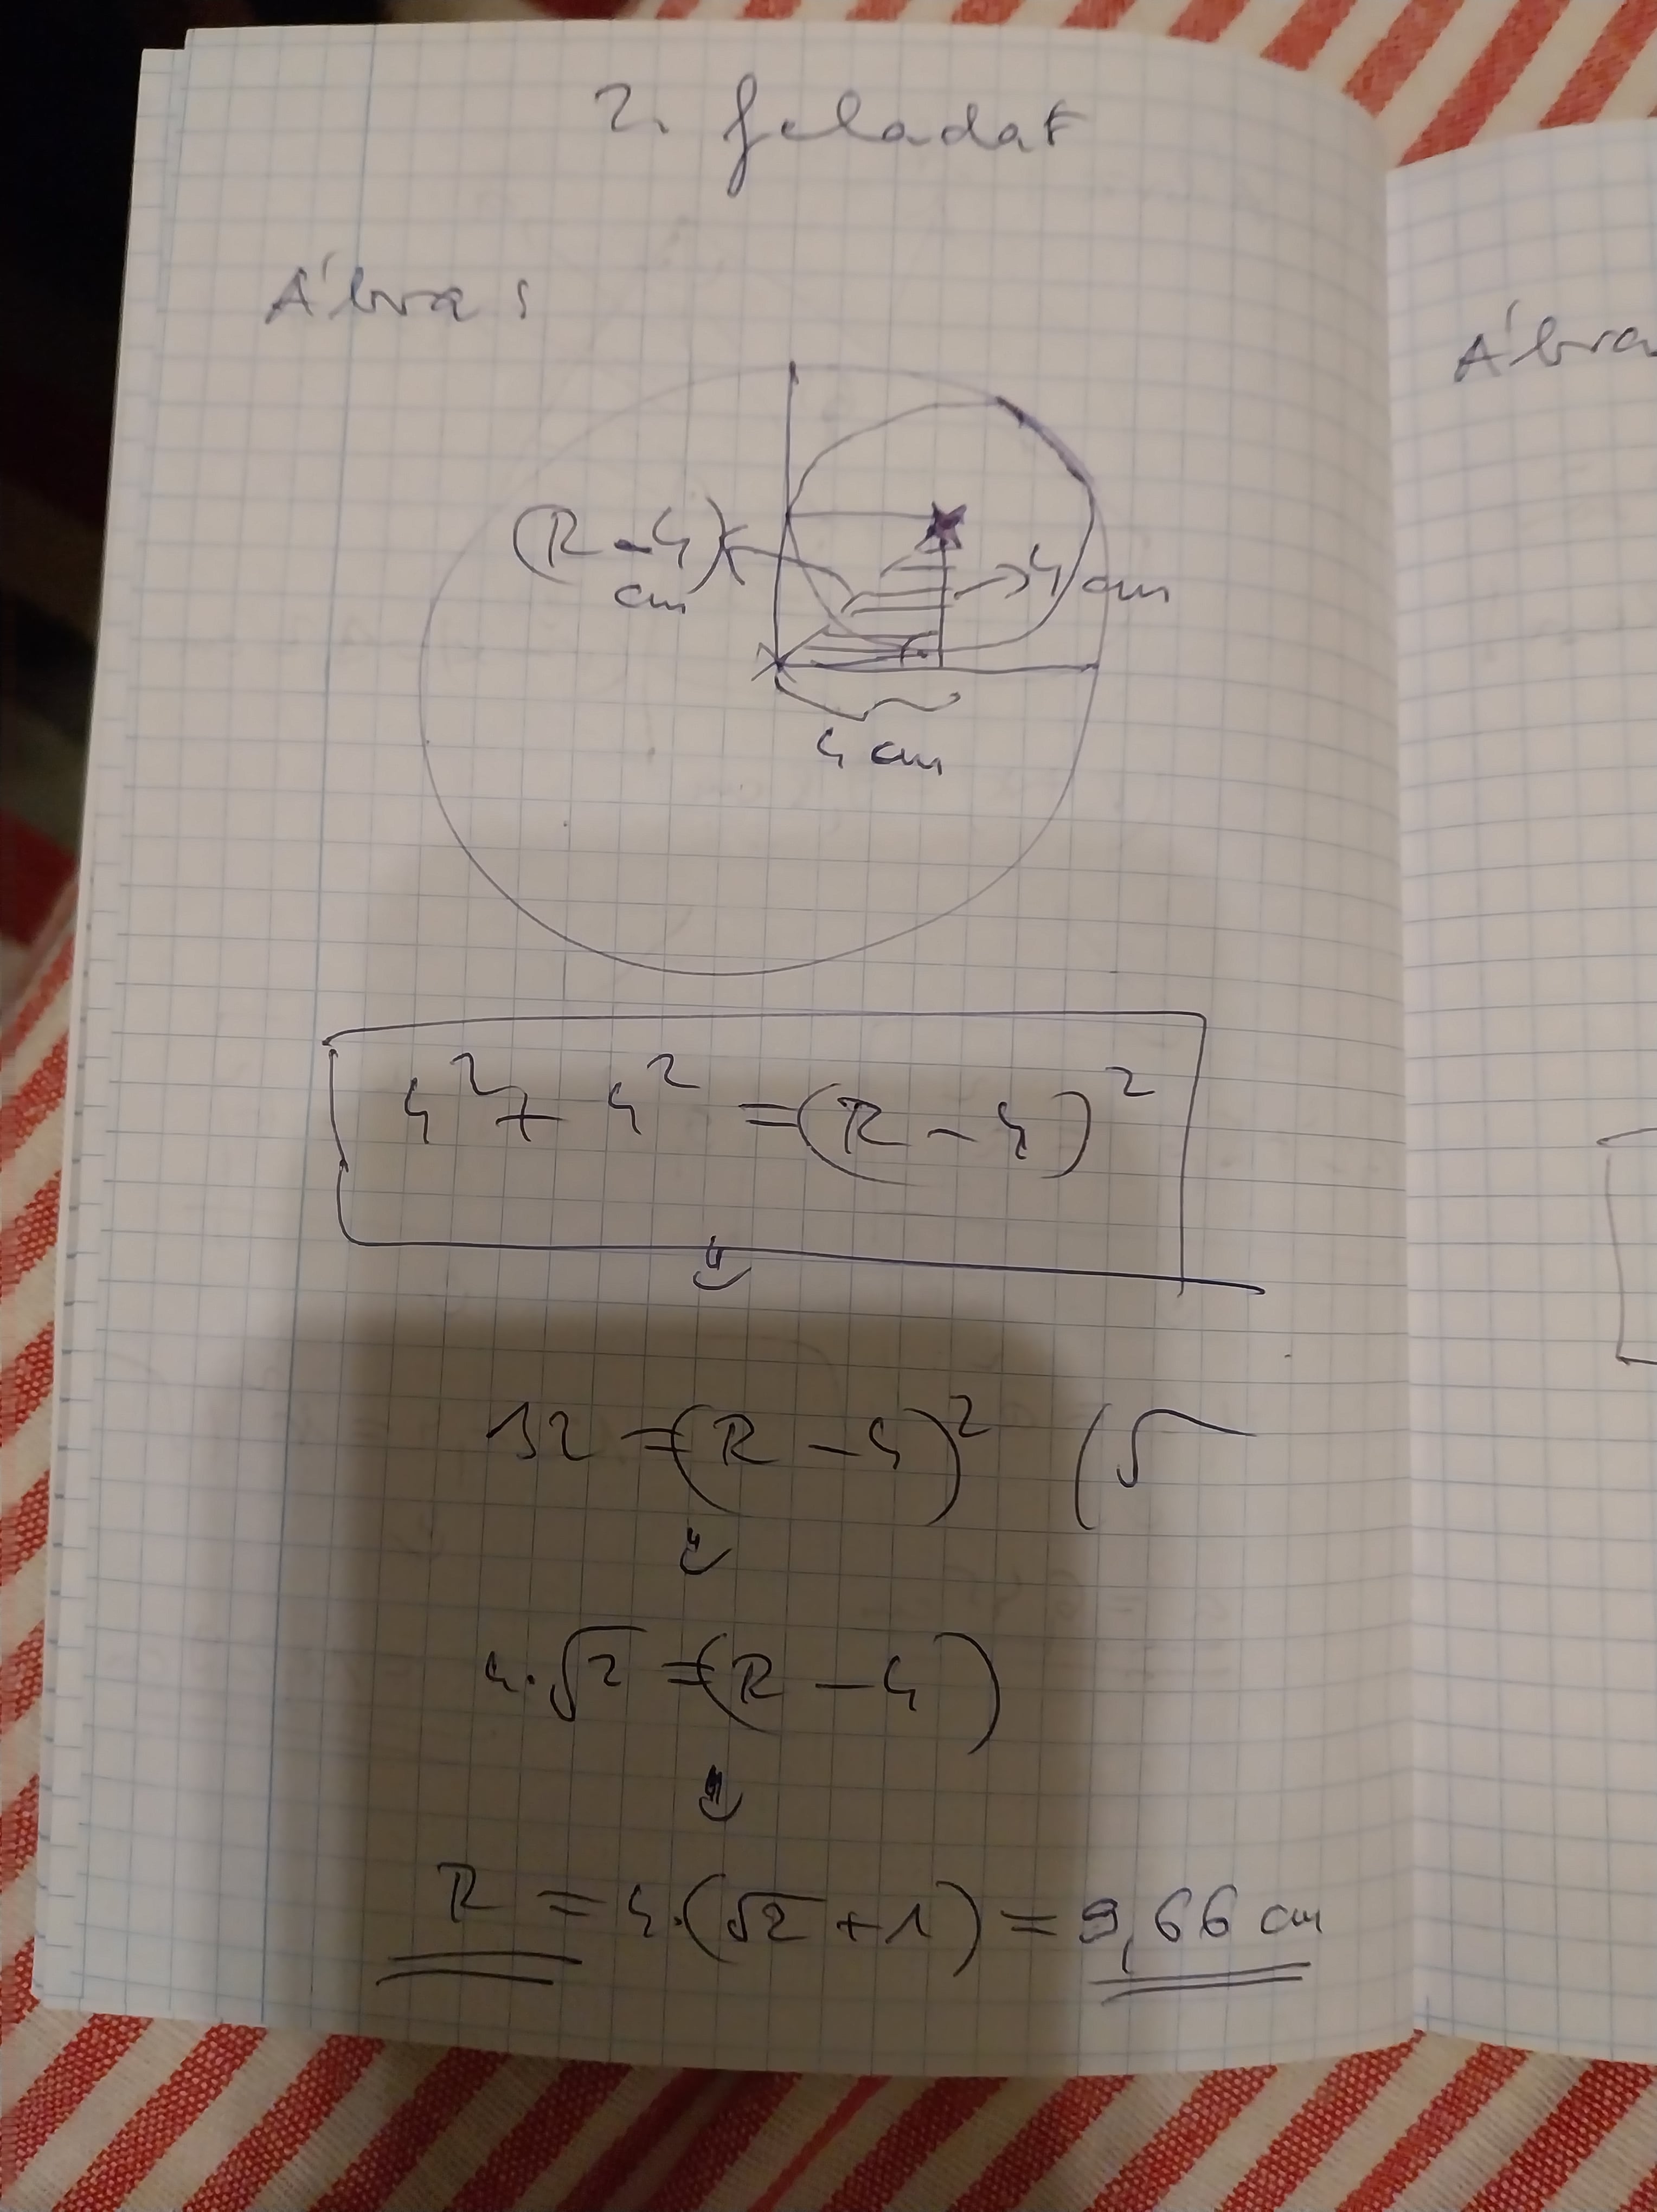 2. feladat
Ábra:
(R-4) cm
4 cm
4 cm
4² + 4² = (R - 4)²
32 = (R - 4)² (√
4·√2 = (R - 4)
R = 4·(√2 + 1) = 9,66 cm
Ábra